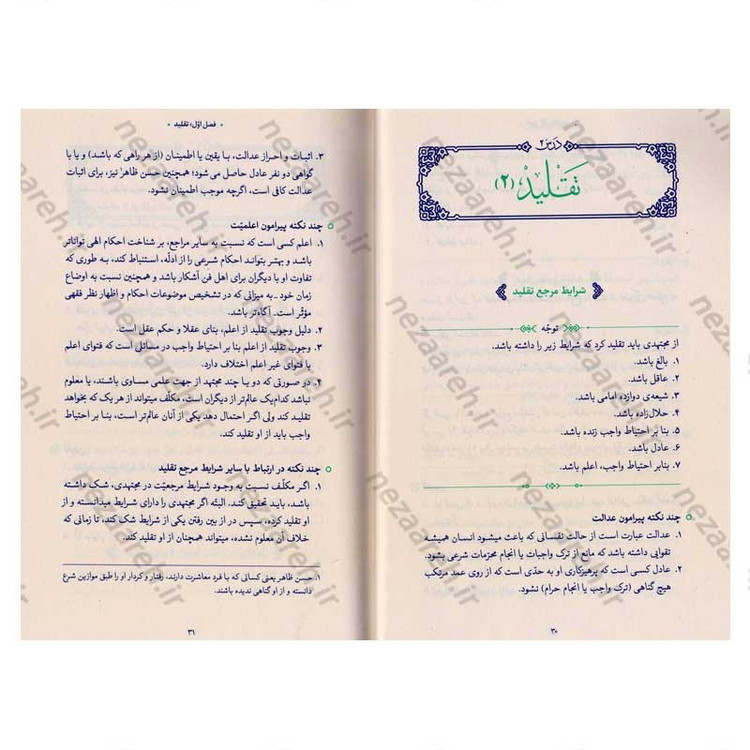 درس ۲
تقلید (۲)
شرایط مرجع تقلید
توجّه
از مجتهدی باید تقلید کرد که شرایط زیر را داشته باشد.
۱. بالغ باشد.
۲. عاقل باشد.
۳. شیعه‌ی دوازده امامی باشد.
۴. حلال‌زاده باشد.
۵. بنا بر احتیاط واجب زنده باشد.
۶. عادل باشد.
۷. بنابر احتیاط واجب، اعلم باشد.
چند نکته پیرامون عدالت
۱. عدالت عبارت است از حالت نفسانی که باعث میشود انسان همیشه
تقوایی داشته باشد که مانع از ترک واجبات یا انجام محرّمات شرعی بشود.
۲. عادل کسی است که پرهیزکاری او به حدّی است که از روی عمد مرتکب
هیچ گناهی (ترک واجب یا انجام حرام) نشود.
۳۰
فصل اوّل: تقلید
۳. اثبات و احراز عدالت، بـا یقین یا اطمینان (از هر راهی که باشد) و یا با
گواهی دو نفر عادل حاصل می شود؛ همچنین حسن ظاهر۱ نیز، برای اثبات
عدالت کافی است، اگرچه موجب اطمینان نشود.
چند نکته پیرامون اعلمیّت
۱. اعلم کسی است که نسبت به سایر مراجع، بر شناخت احکام الهی تواناتر
باشد و بهتر بتواند احکام شرعی را از ادلّه، استنباط کند، به طوری که
تفاوت او با دیگران برای اهل فن آشکار باشد و همچنین نسبت به اوضاع
زمان خود ـ به میزانی که در تشخیص موضوعات احکام و اظهار نظر فقهی
مؤثّر است ـ آگاه‌تر باشد.
۲. دلیل وجوب تقلید از اعلم، بنای عقلا و حکم عقل است.
۳. وجوب تقلید از اعلم بنا بر احتیاط واجب در مسائلی است که فتوای اعلم
با فتوای غیر اعلم اختلاف دارد.
۴. در صورتی که دو یا چند مجتهد از جهت علمی مساوی باشند، یا معلوم
نباشد کدام یک عالم‌تر از دیگران است، مکلّف میتواند از هر یک که بخواهد
تقلید کند ولی اگر احتمال دهد یکی از آنان عالم‌تر است، بنا بر احتیاط
واجب باید از او تقلید کند.
چند نکته در ارتباط با سایر شرایط مرجع تقلید
۱. اگر مکلّف نسبت به وجود شرایط مرجعیّت در مجتهدی، شک داشته
باشد، باید تحقیق کند. البتّه اگر مجتهدی را دارای شرایط میدانسته و از
او تقلید کرده، سپس در از بین رفتن یکی از شرایط شک کند، تا زمانی که
خلاف آن معلوم نشده، میتواند همچنان از او تقلید کند.
۱. حسن ظاهر یعنی کسانی که با فرد معاشرت دارند، رفتار و کردار او را طبق موازین شرع
دانسته و از او گناهی ندیده باشند.
۳۱
nezaareh.ir